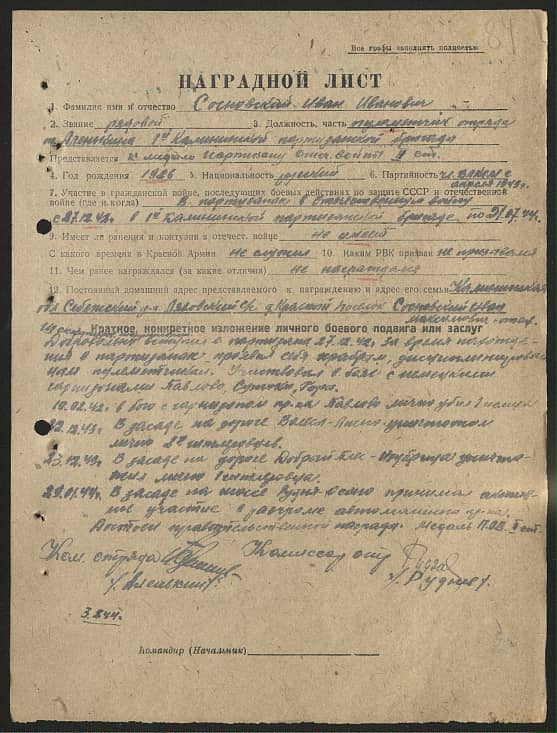 Все графы заполнять полностью
84
НАГРАДНОЙ ЛИСТ
1. Фамилия имя и отчество Сосновский Иван Иванович
2. Звание рядовой 3. Должность, часть пулеметчик отряда
т. Аленькина 1й Калининской партизанской бригады
Представляется к медали Партизану Отеч. войны II ст.
4. Год рождения 1926 5. Национальность русский 6. Партийность чл. ВЛКСМ с
апреля 1943 г.
7. Участие в гражданской войне, последующих боевых действиях по защите СССР и отечественной
войне (где и когда) В партизанах в Отечественную войну
с 27.12.42 г. в 1й Калининской партизанской бригаде по 07.44 г.
9. Имеет ли ранения и контузии в отечест. войне не имеет
С какого времени в Красной Армии не служил 10. Каким РВК призван не призывался
11. Чем ранее награждался (за какие отличия) не награждался
12. Постоянный домашний адрес представляемого к награждению и адрес его семьи Калининская
обл. Себежский р-н д. Красный поселок Сосновский Иван
Максимович - отец
Краткое, конкретное изложение личного боевого подвига или заслуг
Добровольно вступил в партизаны 27.12.42 г. За время нахождения
в партизанах проявил себя храбрым, дисциплинированным
пулеметчиком. Участвовал в боях с немецкими
гарнизонами Павлово,
10.02.42 г. в бою с гарнизоном Павлово лично убил 1 немца
12.12.43 г. В засаде на дороге уничтожил
лично 2х гитлеровцев.
23.12.43 г. В засаде на дороге уничтожил
лично 1 гитлеровца.
29.01.44 г. В засаде на шоссе принимал активное
участие в разгроме автомашины
Достоин правительственной награды. Медаль П.О.В. II ст.
Ком. отряда Комиссар отр.
/Аленькин/ /Руднев/
3.8.44 г.
Командир (Начальник)